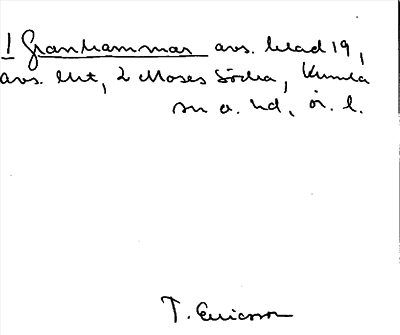 1 Granhammar avs. blad 19,
avs. Mt, 2 Moses Södra, Kumla
sn o. hd, ör. l.
T. Ericsson